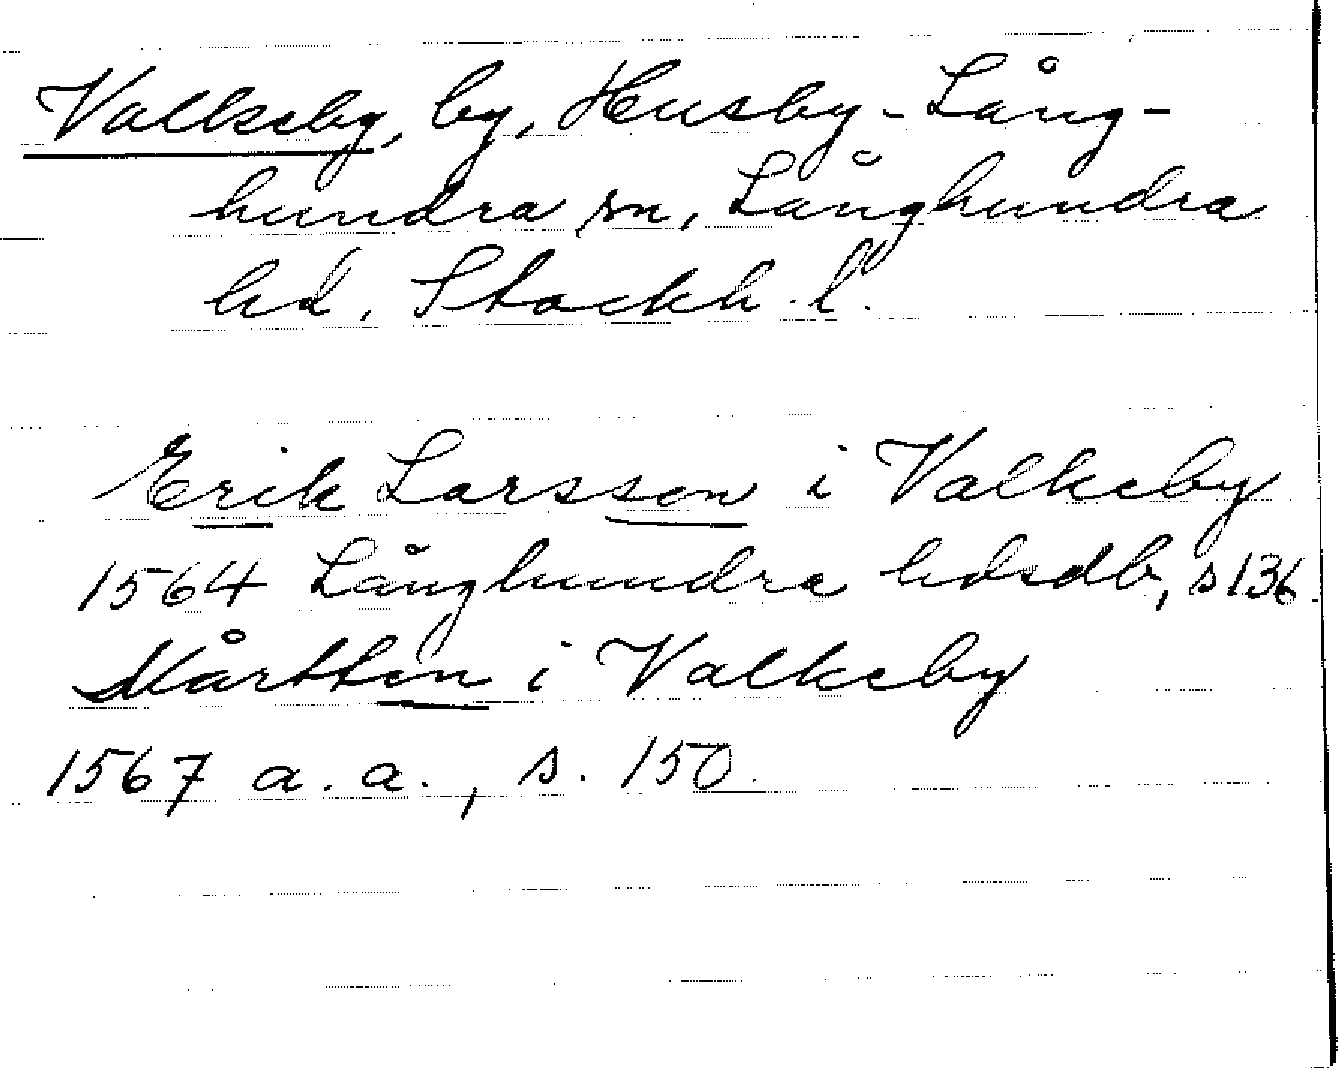 Valkeby, by, Husby-Lång-
hundra sn, Långhundra
hd. Stockh. l.
Erik Larsson i Valkeby
1564 Långhundra hdsdb, s 136
Mårtten i Valkeby
1567 a. a., s. 150.